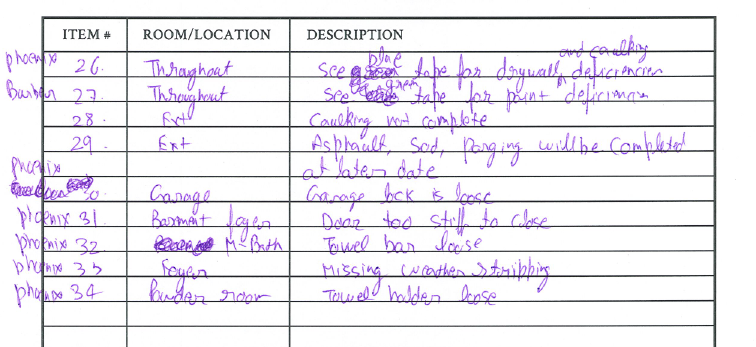 ITEM # ROOM/LOCATION DESCRIPTION
phoenix 26 Throughout See blue tape for drywall and caulking deficiencies
27 Throughout See green tape for paint deficiencies
28. Ext Caulking not complete
29. Ext Asphalt, Sod, Parging will be Completed
phoenix at later date
30 Garage Garage lock is loose
phoenix 31. Basement foyer Door too stiff to close
phoenix 32 M-Bath Towel bar loose
phoenix 33 Foyer Missing weather stripping
phoenix 34 Powder room Towel holder loose